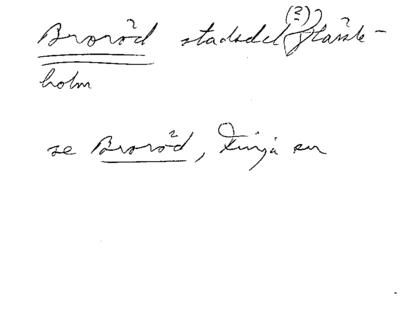 Broröd stadsdel (?) Hässle-
holm
se Broröd, Tyringe sn